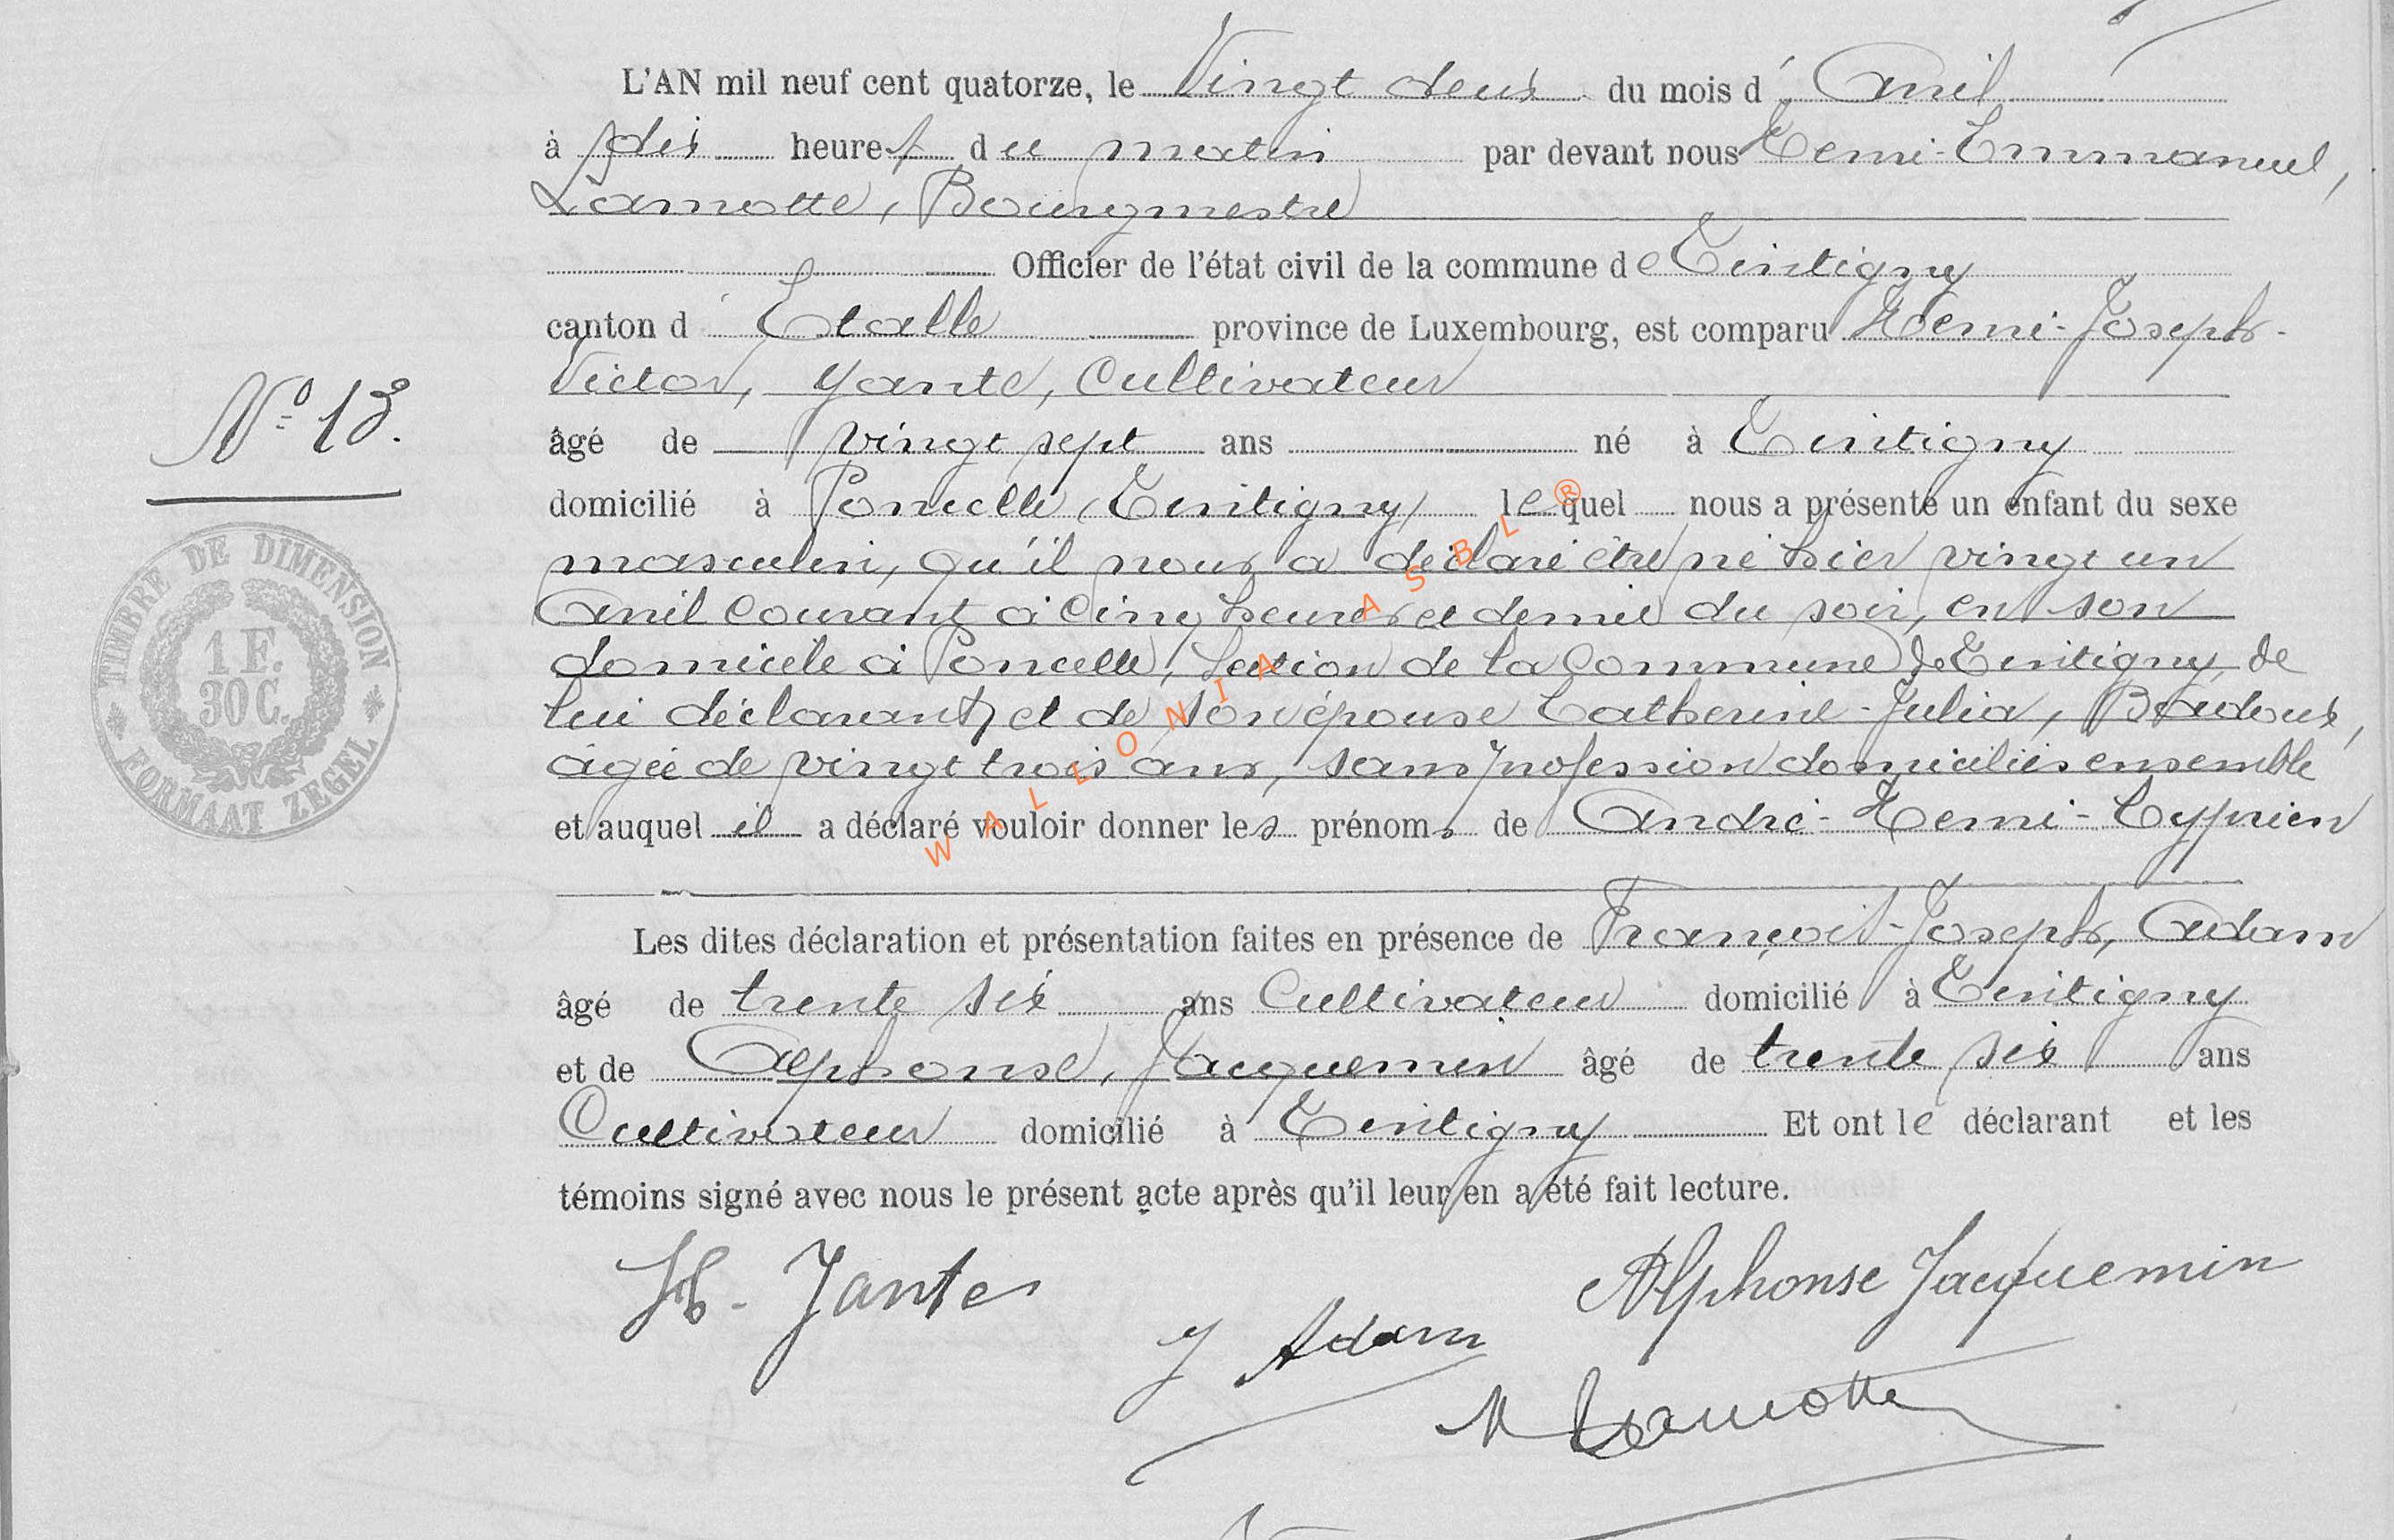 L'AN mil neuf cent quatorze, le Vingt deux du mois d' Avril
à dix heures du matin par devant nous Henri-Emmanuel,
Lamotte, Bourgmestre
Officier de l'état civil de la commune de Tintigny
canton d' Etalle province de Luxembourg, est comparu Henri-Joseph-
Victor, Yante, Cultivateur
N° 13.
âgé de vingt sept ans né à Tintigny
domicilié à Poncelle (Tintigny) lequel nous a présenté un enfant du sexe
masculin, qu'il nous a déclaré être né hier vingt un
Avril Courant à Cinq heures et demie du soir, en son
domicile à Poncelle, Section de la Commune de Tintigny, de
lui déclarant et de son épouse Catherine-Julia,
âgée de vingt trois ans, sans profession domiciliés ensemble
et auquel il a déclaré vouloir donner les prénoms de André-Henri-Cyprien
Les dites déclaration et présentation faites en présence de François-Joseph, Adam
âgé de trente six ans Cultivateur domicilié à Tintigny
et de Alphonse, Jacquemin âgé de trente six ans
Cultivateur domicilié à Tintigny Et ont le déclarant et les
témoins signé avec nous le présent acte après qu'il leur en a été fait lecture.
H. Yante
Alphonse Jacquemin
J Adam
Lamotte
TIMBRE DE DIMENSION
1 F.
30 C.
FORMAAT ZEGEL
WALLONIA ASBL ®